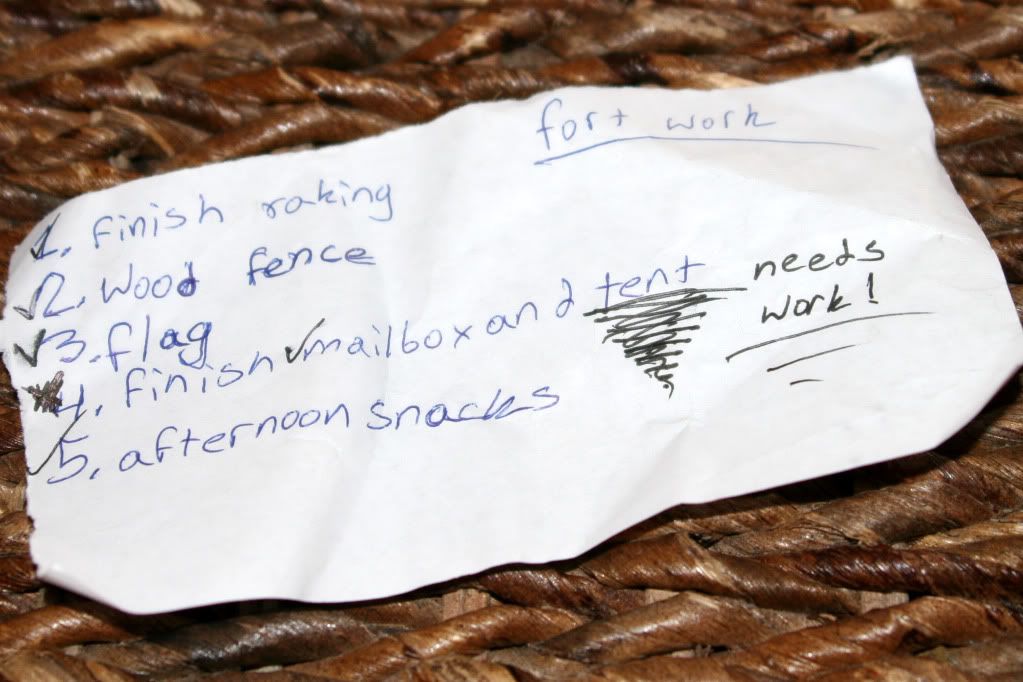 fort work
1. finish raking
2. wood fence
3. flag
4. finish ✓mailbox and tent needs
work!
5. afternoon snacks